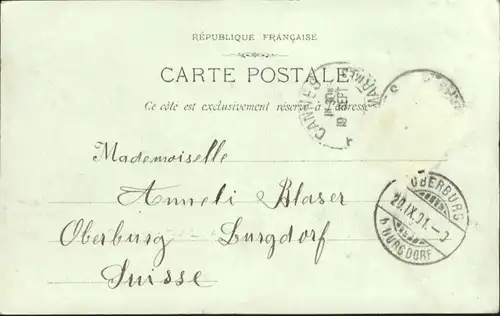 RÉPUBLIQUE FRANÇAISE
CARTE POSTALE
Ce côté est exclusivement réservé à l'adresse
CANNES
18 SEPT
Mademoiselle
Anneli Blaser
Oberburg - Burgdorf
Suisse
OBERBURG
20.IX.01.-9
(BURGDORF)